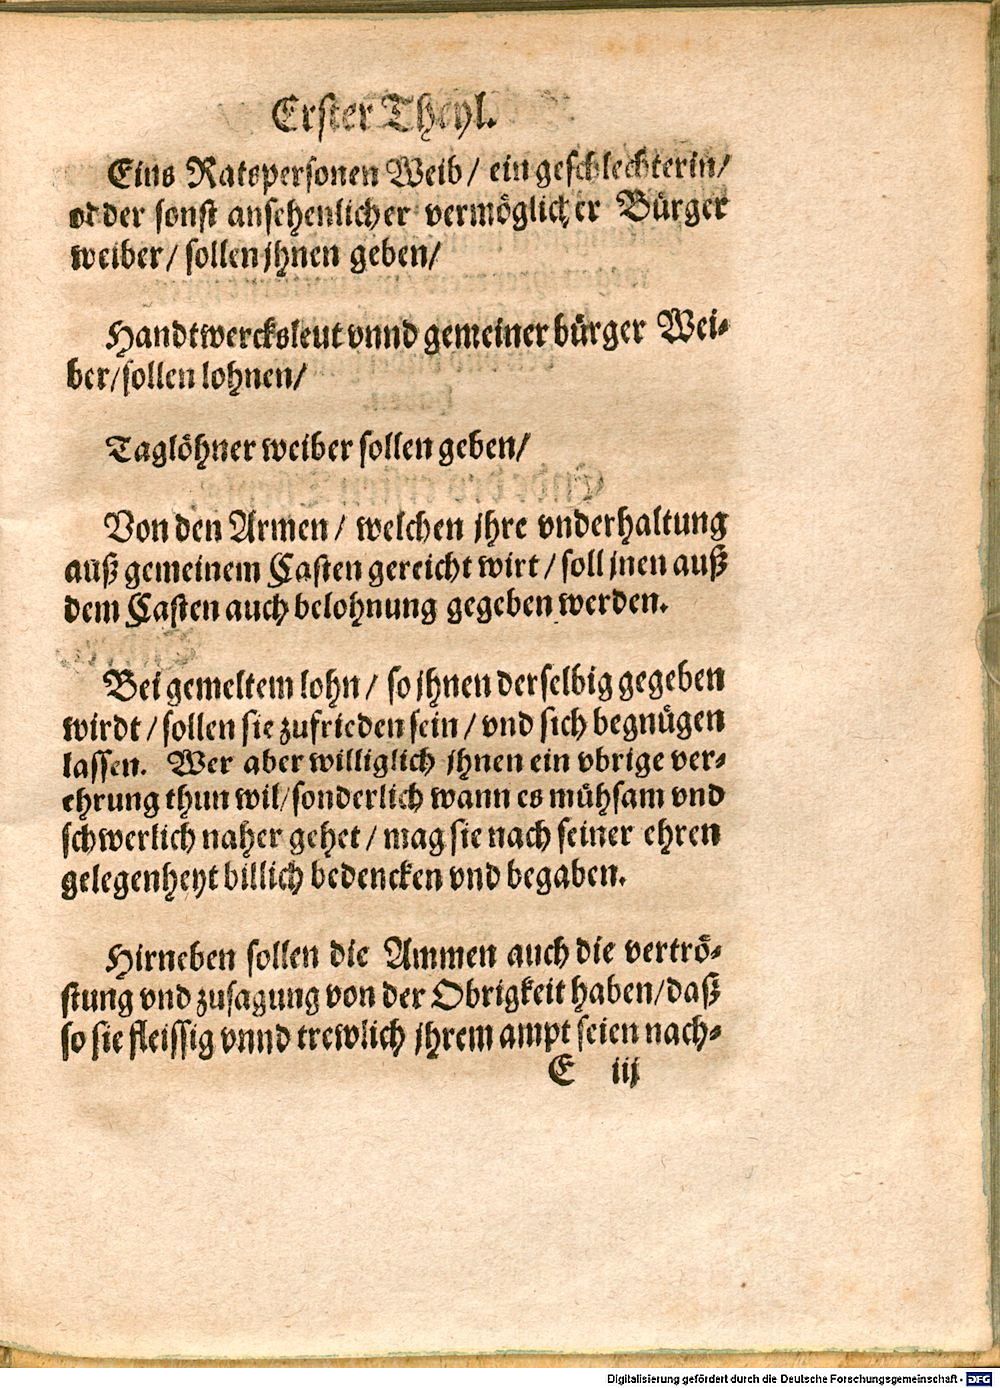 Erster Theyl.
Eins Ratspersonen Weib / ein geschlechterin /
odder sonst ansehenlicher vermöglicher Bürger
weiber / sollen jhnen geben /
Handtwercksleut vnnd gemeiner bürger Wei-
ber / sollen lohnen /
Taglöhner weiber sollen geben /
Von den Armen / welchen jhre vnderhaltung
auß gemeinem Casten gereicht wirt / soll jnen auß
dem Casten auch belohnung gegeben werden.
Bei gemeltem lohn / so jhnen derselbig gegeben
wirdt / sollen sie zufrieden sein / vnd sich begnügen
lassen. Wer aber williglich jhnen ein vbrige ver-
ehrung thun wil / sonderlich wann es mühsam vnd
schwerlich naher gehet / mag sie nach seiner ehren
gelegenheyt billich bedencken vnd begaben.
Hirneben sollen die Ammen auch die vertrö-
stung vnd zusagung von der Obrigkeit haben / daß
so sie fleissig vnnd trewlich jhrem ampt seien nach-
E iij
Digitalisierung gefördert durch die Deutsche Forschungsgemeinschaft - DFG